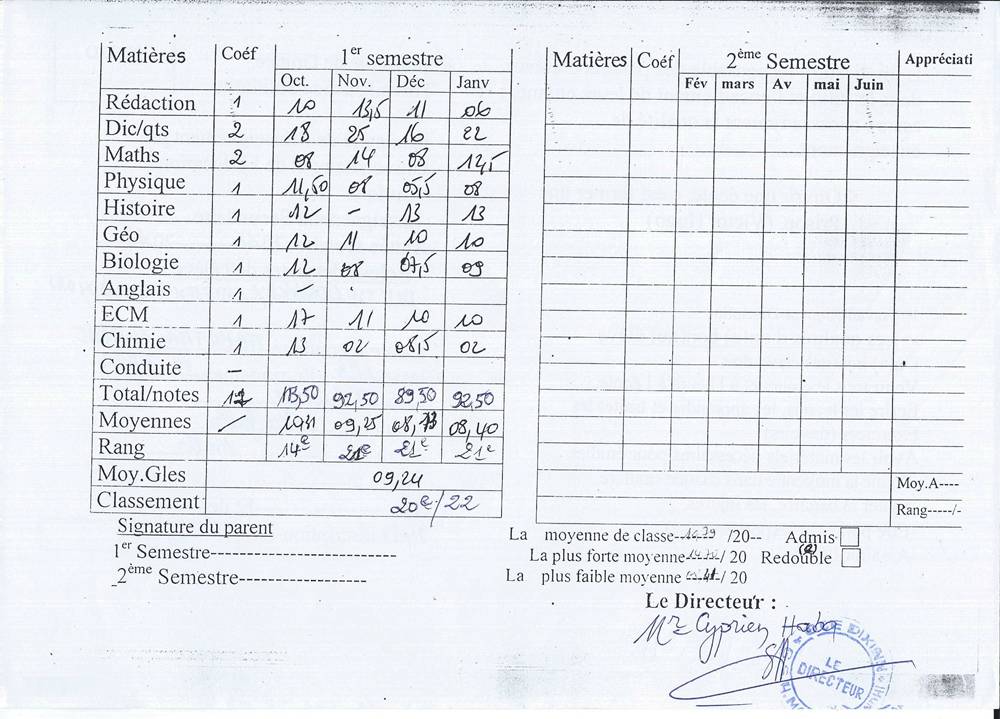 Matières Coéf 1er semestre
Oct. Nov. Déc Janv
Rédaction 1 10 13,5 11 06
Dic/qts 2 18 25 16 22
Maths 2 08 14 08 12,5
Physique 1 11,50 08 05,5 08
Histoire 1 12 - 13 13
Géo 1 12 11 10 10
Biologie 1 12 08 07,5 09
Anglais 1 -
ECM 1 17 11 10 10
Chimie 1 13 02 08,5 02
Conduite -
Total/notes 12 113,50 92,50 89,50 92,50
Moyennes / 09,25 08,40
Rang 14e 21e 21e 21e
Moy.Gles 09,24
Classement 20e/22
Signature du parent
1er Semestre------------------------
2ème Semestre-------------------
Matières Coéf 2ème Semestre Appréciati
Fév mars Av mai Juin
Moy.A----
Rang-----/-
La moyenne de classe /20-- Admis
La plus forte moyenne / 20 Redouble
La plus faible moyenne / 20
Le Directeur :
Mr Cyprien Haba
LE
DIRECTEUR